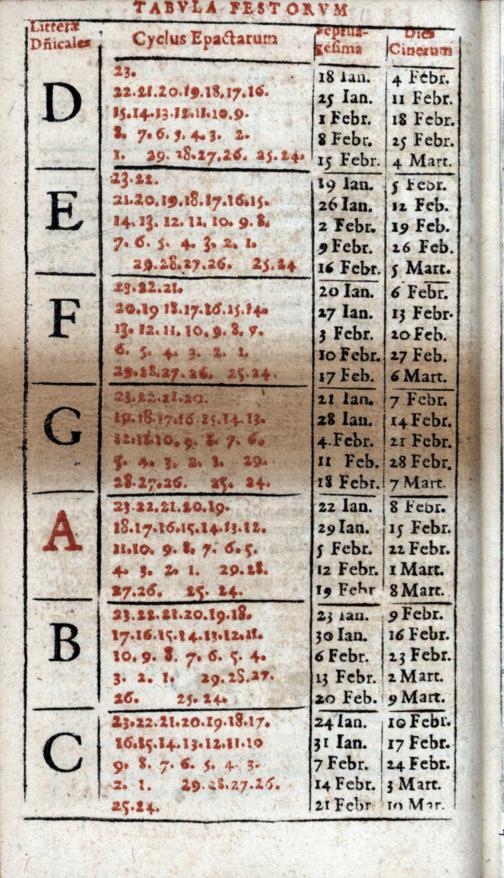 TABVLA FESTORVM
Litteræ Dñicales Cyclus Epactarum Septuagesima Dies Cinerum
D 23. 18 Ian. 4 Febr.
22.21.20.19.18.17.16. 25 Ian. 11 Febr.
15.14.13.12.11.10.9. 1 Febr. 18 Febr.
8. 7.6.5.4.3. 2. 8 Febr. 25 Febr.
1. 29.28.27.26. 25.24. 15 Febr. 4 Mart.
E 23.22. 19 Ian. 5 Febr.
21.20.19.18.17.16.15. 26 Ian. 12 Feb.
14.13.12.11.10.9.8. 2 Febr. 19 Feb.
7. 6. 5. 4. 3. 2. 1. 9 Febr. 26 Feb.
29.28.27.26. 25.24 16 Febr. 5 Mart.
F 23.22.21. 20 Ian. 6 Febr.
20.19 18.17.16.15.14. 27 Ian. 13 Febr.
13.12.11.10.9.8.7. 3 Febr. 20 Feb.
6. 5. 4. 3. 2. 1. 10 Febr. 27 Feb.
29.28.27.26. 25.24. 17 Feb. 6 Mart.
G 23.22.21.20. 21 Ian. 7 Febr.
19.18.17.16.15.14.13. 28 Ian. 14 Febr.
12.11.10.9.8.7.6. 4.Febr. 21 Febr.
5. 4. 3. 2. 1. 29. 11 Feb. 28 Febr.
28.27.26. 25. 24. 18 Febr. 7 Mart.
A 23.22.21.20.19. 22 Ian. 8 Febr.
18.17.16.15.14.13.12. 29 Ian. 15 Febr.
11.10. 9. 8. 7. 6. 5. 5 Febr. 22 Febr.
4. 3. 2. 1. 29.28. 12 Febr. 1 Mart.
27.26. 25. 24. 19 Febr 8 Mart.
B 23.22.21.20.19.18. 23 Ian. 9 Febr.
17.16.15.14.13.12.11. 30 Ian. 16 Febr.
10. 9. 8. 7. 6. 5. 4. 6 Febr. 23 Febr.
3. 2. 1. 29.28.27. 13 Febr. 2 Mart.
26. 25.24. 20 Feb. 9 Mart.
C 23.22.21.20.19.18.17. 24 Ian. 10 Febr.
16.15.14.13.12.11.10 31 Ian. 17 Febr.
9. 8. 7. 6. 5. 4. 3. 7 Febr. 24 Febr.
2. 1. 29.28.27.26. 14 Febr. 3 Mart.
25.24. 21 Febr 10 Mar.